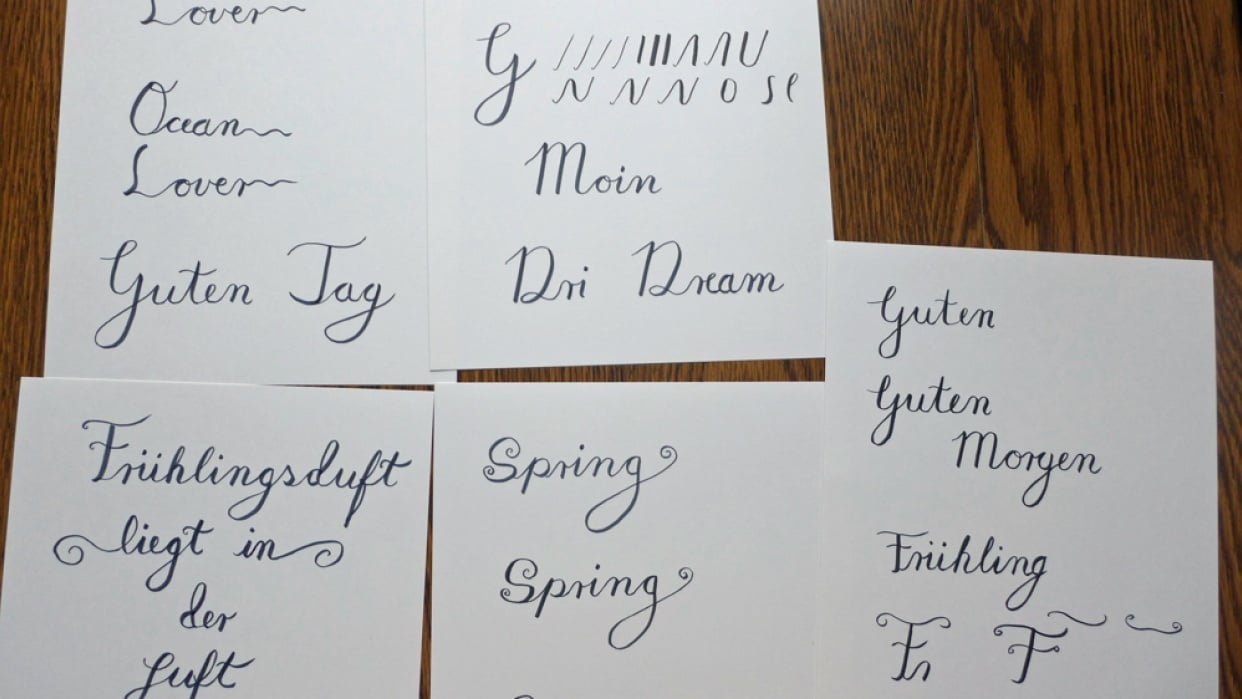 Lover
Ocean
Lover
Guten Tag
G
Moin
Dri Dream
Guten
Guten
Morgen
Frühling
Fr F
Frühlingsduft
liegt in
der
Luft
Spring
Spring